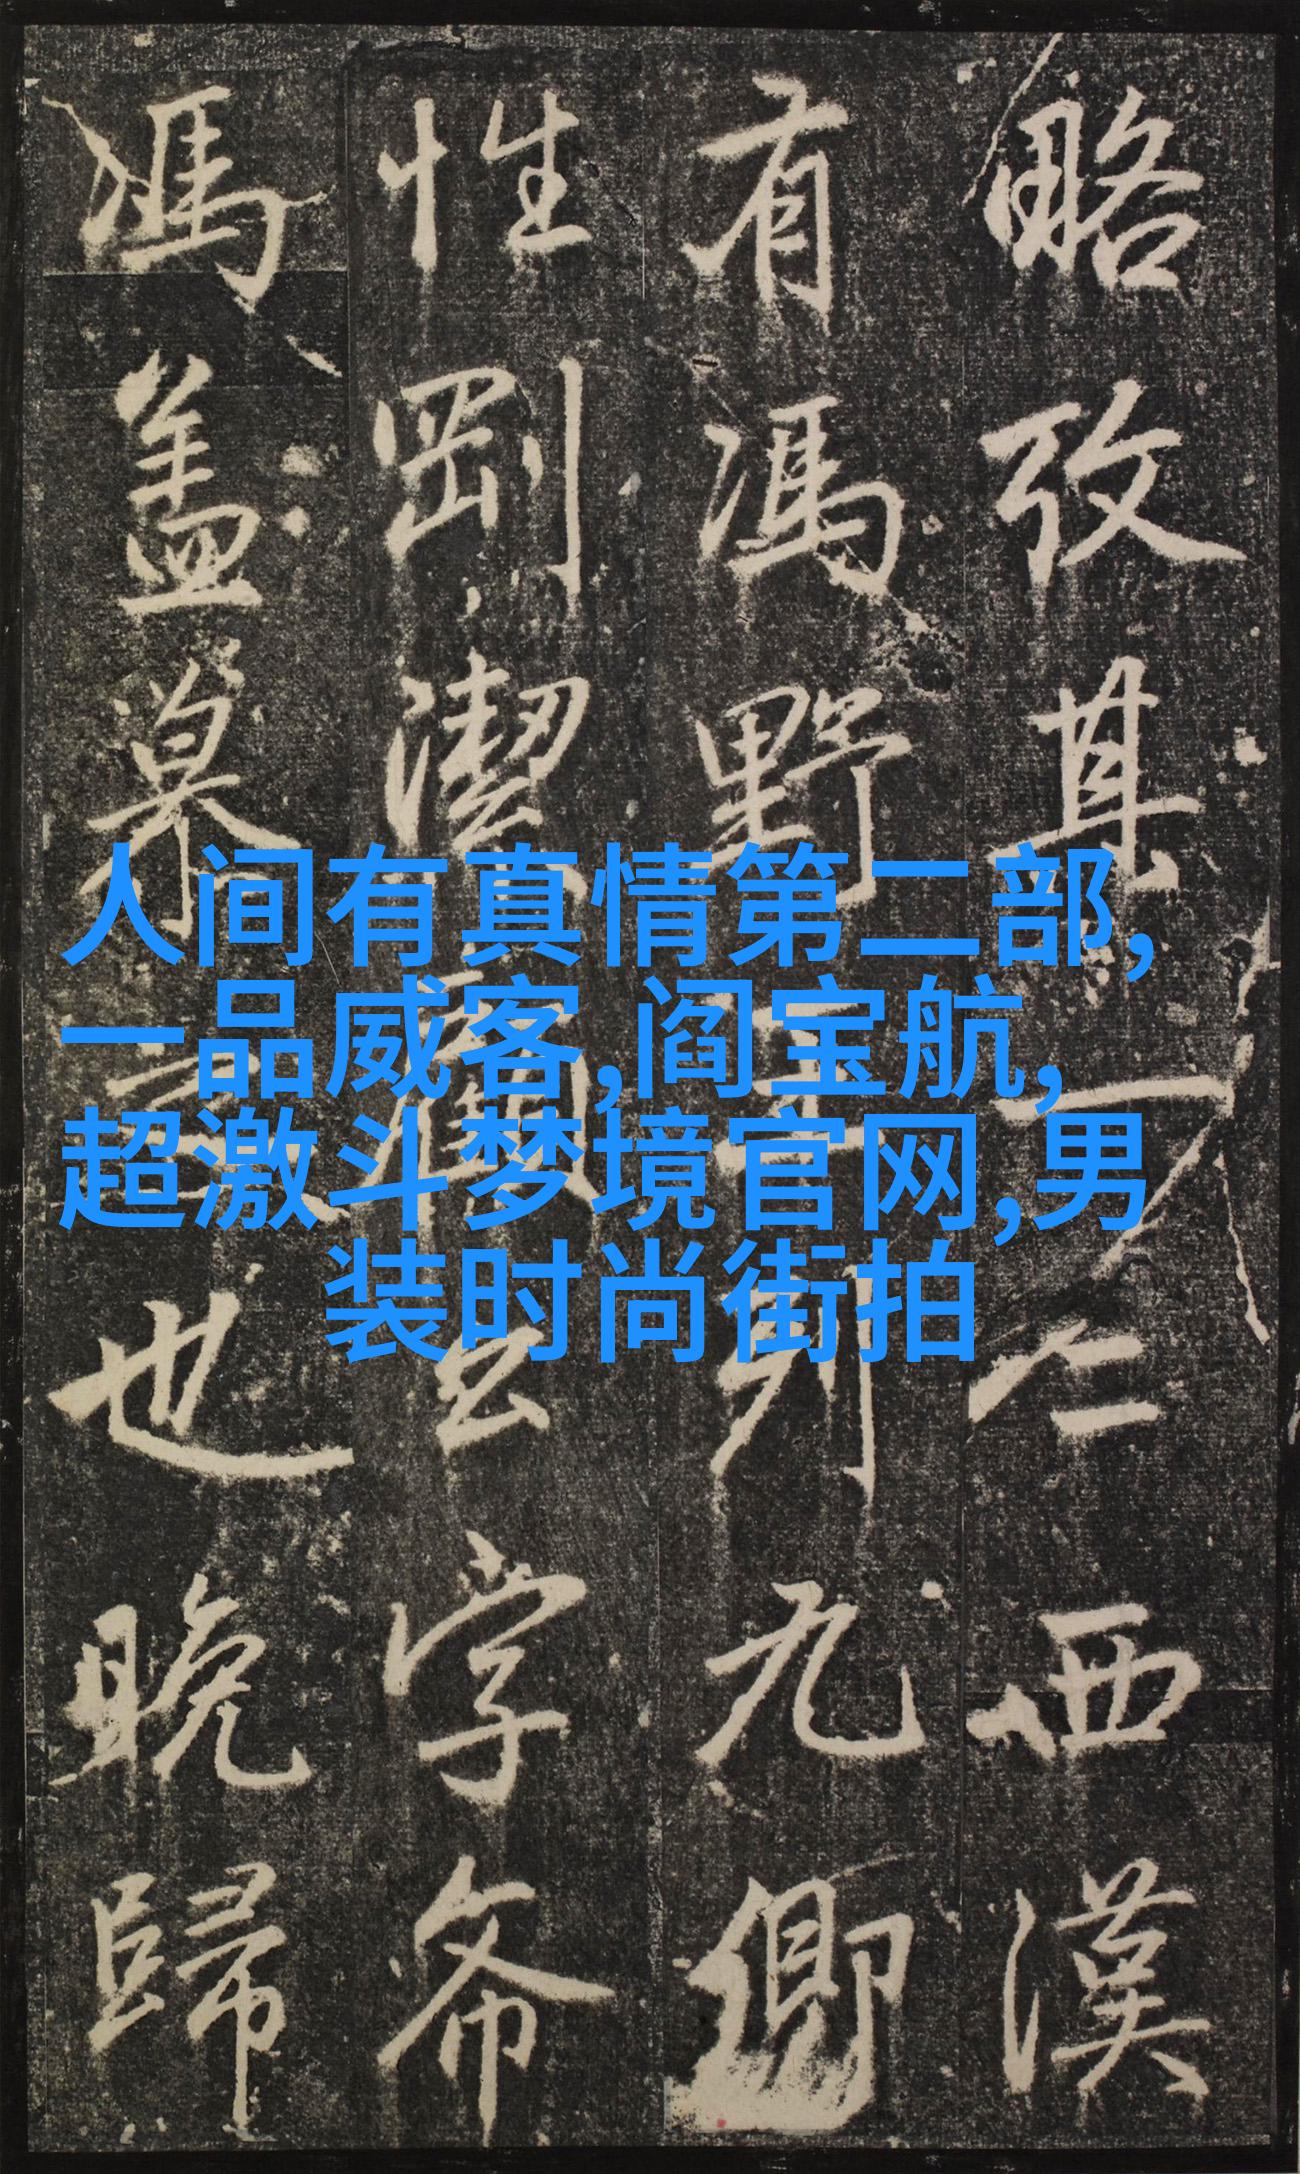 略攷其西漢
有馮野王列九卿
性剛潔字
馮盖慕也晚歸
人间有真情第二部,
一品威客,阎宝航,
超激斗梦境官网,男
装时尚街拍